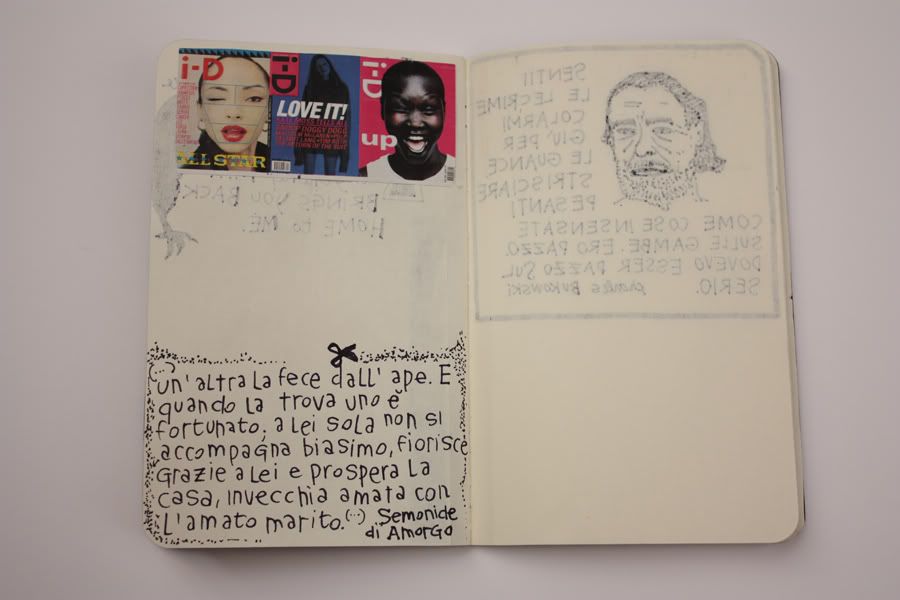 i-D
ALL STAR
i-D
LOVE IT!
SNOOP DOGGY DOGG
THE RETURN OF THE SUIT
i-D
up
BRINGS YOU BACK
HOME to ME.
(...)
un'altra la fece dall'ape. E
quando la trova uno è
fortunato, a lei sola non si
accompagna biasimo, fiorisce
grazie a lei e prospera la
casa, invecchia amata con
l'amato marito. (...) Semonide
di Amorgo
SENTII
LE LECRIME
COLARMI
GIU' PER
LE GUANCE,
STRISCIARE
PESANTI
COME COSE INSENSATE
SULLE GAMBE. ERO PAZZO.
DOVEVO ESSER PAZZO SUL
SERIO. Charles Bukowski